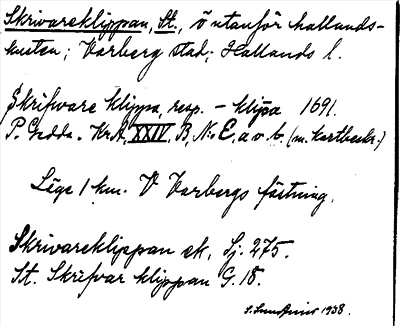 Skrivareklippan, St., ö utanför hallands-
kusten; Varberg stad; Hallands l.
Skrifware klippa, resp. - klipa 1691.
P. Gedda. Kr.A, XXIV, B, N:o E, a o b. (m. kartbeskr.)
Läge 1 km. V Varbergs fästning.
Skrivareklippan ek. Sj. 275.
St. Skrifvar klippan G. 18.
1938.